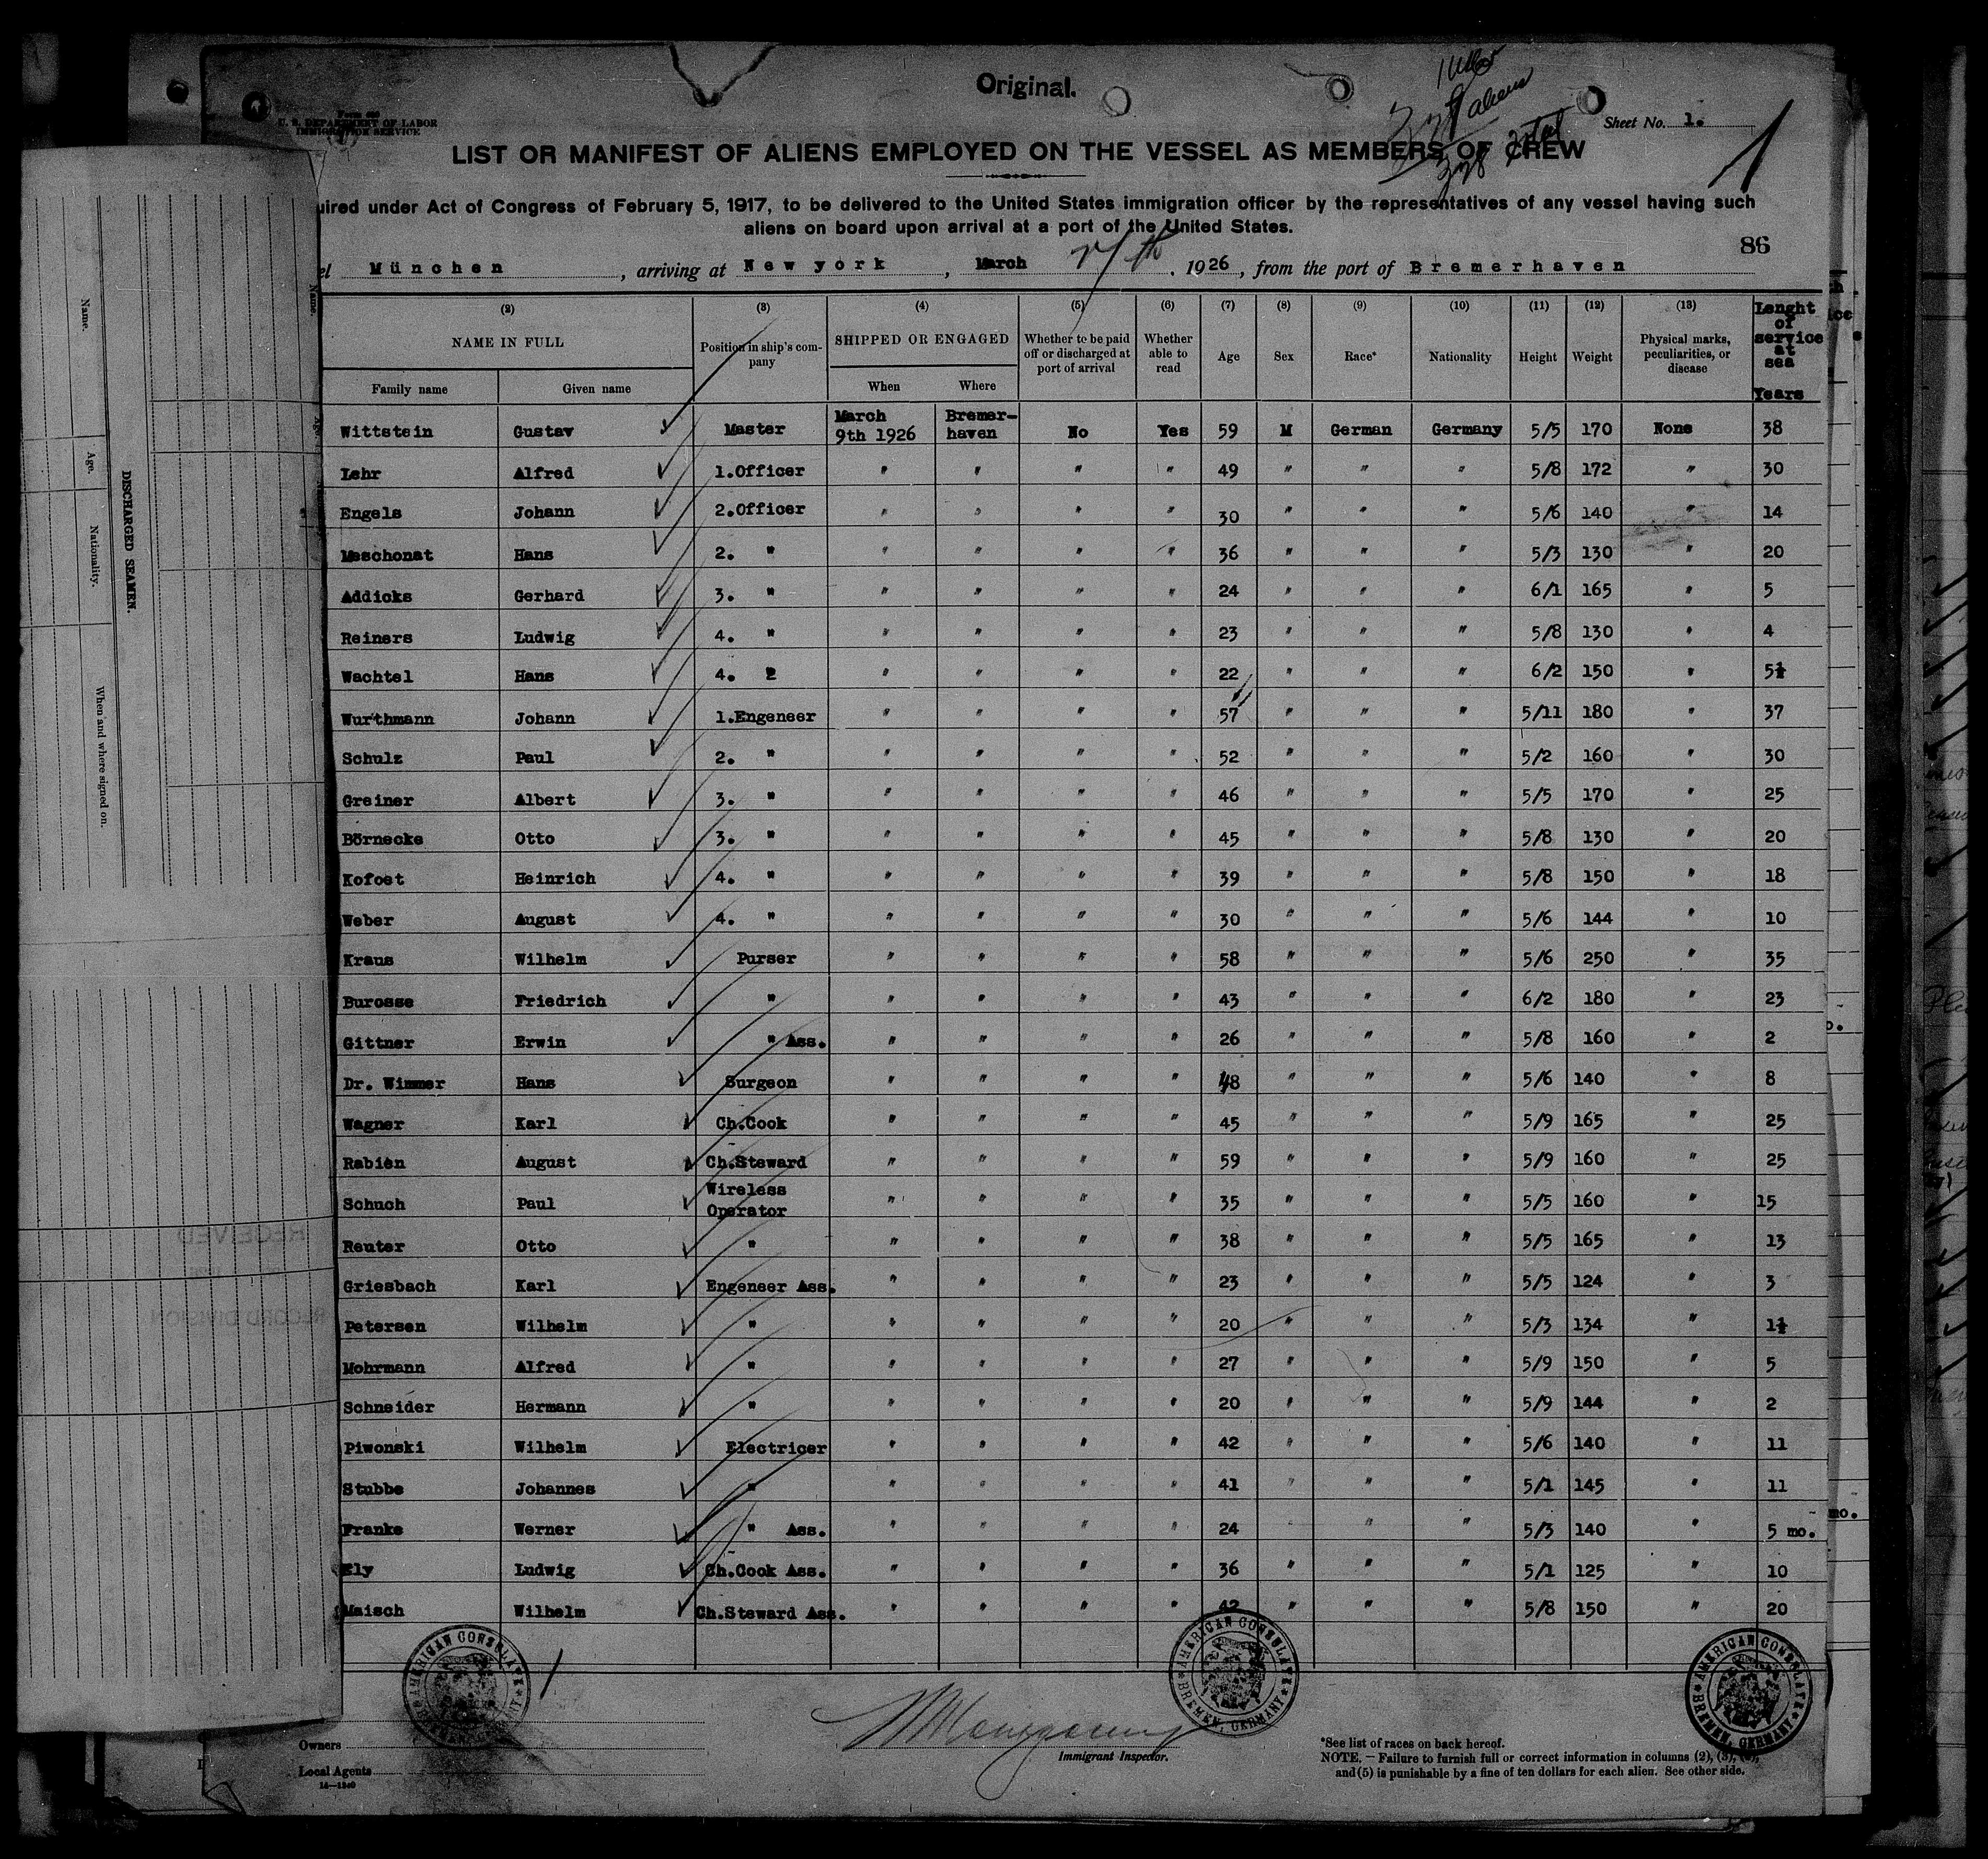 Original.
U. S. DEPARTMENT OF LABOR
IMMIGRATION SERVICE
Sheet No. 1.
1
aliens
LIST OR MANIFEST OF ALIENS EMPLOYED ON THE VESSEL AS MEMBERS OF CREW
uired under Act of Congress of February 5, 1917, to be delivered to the United States immigration officer by the representatives of any vessel having such
aliens on board upon arrival at a port of the United States.
86
el München, arriving at New york, March, 1926, from the port of Bremerhaven
(2) (3) (4) (5) (6) (7) (8) (9) (10) (11) (12) (13)
NAME IN FULL
Family name Given name
Position in ship's company
SHIPPED OR ENGAGED
When Where
Whether to be paid off or discharged at port of arrival
Whether able to read
Age Sex Race* Nationality Height Weight
Physical marks, peculiarities, or disease
Lenght of service at sea Years
Wittstein Gustav Master March 9th 1926 Bremer-haven No Yes 59 M German Germany 5/5 170 None 38
Lehr Alfred 1.Officer " " " " 49 " " " 5/8 172 " 30
Engels Johann 2.Officer " " " " 30 " " " 5/6 140 " 14
Maschonat Hans 2. " " " " " 36 " " " 5/3 130 " 20
Addicks Gerhard 3. " " " " " 24 " " " 6/1 165 " 5
Reiners Ludwig 4. " " " " " 23 " " " 5/8 130 " 4
Wachtel Hans 4. 2 " " " " 22 " " " 6/2 150 " 5½
Wurthmann Johann 1.Engeneer " " " " 57 " " " 5/11 180 " 37
Schulz Paul 2. " " " " " 52 " " " 5/2 160 " 30
Greiner Albert 3. " " " " " 46 " " " 5/5 170 " 25
Börnecke Otto 3. " " " " " 45 " " " 5/8 130 " 20
Kofoet Heinrich 4. " " " " " 39 " " " 5/8 150 " 18
Weber August 4. " " " " " 30 " " " 5/6 144 " 10
Kraus Wilhelm Purser " " " " 58 " " " 5/6 250 " 35
Burosse Friedrich " " " " " 43 " " " 6/2 180 " 23
Gittner Erwin " Ass. " " " " 26 " " " 5/8 160 " 2
Dr. Wimmer Hans Surgeon " " " " 48 " " " 5/6 140 " 8
Wagner Karl Ch.Cook " " " " 45 " " " 5/9 165 " 25
Rabien August Ch.Steward " " " " 59 " " " 5/9 160 " 25
Schuch Paul Wireless Operator " " " " 35 " " " 5/5 160 " 15
Reuter Otto " " " " " 38 " " " 5/5 165 " 13
Griesbach Karl Engeneer Ass. " " " " 23 " " " 5/5 124 " 3
Petersen Wilhelm " " " " " 20 " " " 5/3 134 " 1½
Mohrmann Alfred " " " " " 27 " " " 5/9 150 " 5
Schneider Hermann " " " " " 20 " " " 5/9 144 " 2
Piwonski Wilhelm Electricer " " " " 42 " " " 5/6 140 " 11
Stubbe Johannes " " " " " 41 " " " 5/1 145 " 11
Franke Werner " Ass. " " " " 24 " " " 5/3 140 " 5 mo.
Ely Ludwig Ch.Cook Ass. " " " " 36 " " " 5/1 125 " 10
Maisch Wilhelm Ch.Steward Ass. " " " " 42 " " " 5/8 150 " 20
AMERICAN CONSULATE
AMERICAN CONSULATE BREMEN, GERMANY
AMERICAN CONSULATE BREMEN, GERMANY
Owners
Local Agents
Immigrant Inspector.
*See list of races on back hereof.
NOTE. — Failure to furnish full or correct information in columns (2), (3),
and (5) is punishable by a fine of ten dollars for each alien. See other side.
DISCHARGED SEAMEN.
Name.
Age.
Nationality.
When and where signed on.
Name.
RECEIVED
RECORD DIVISION
mo.